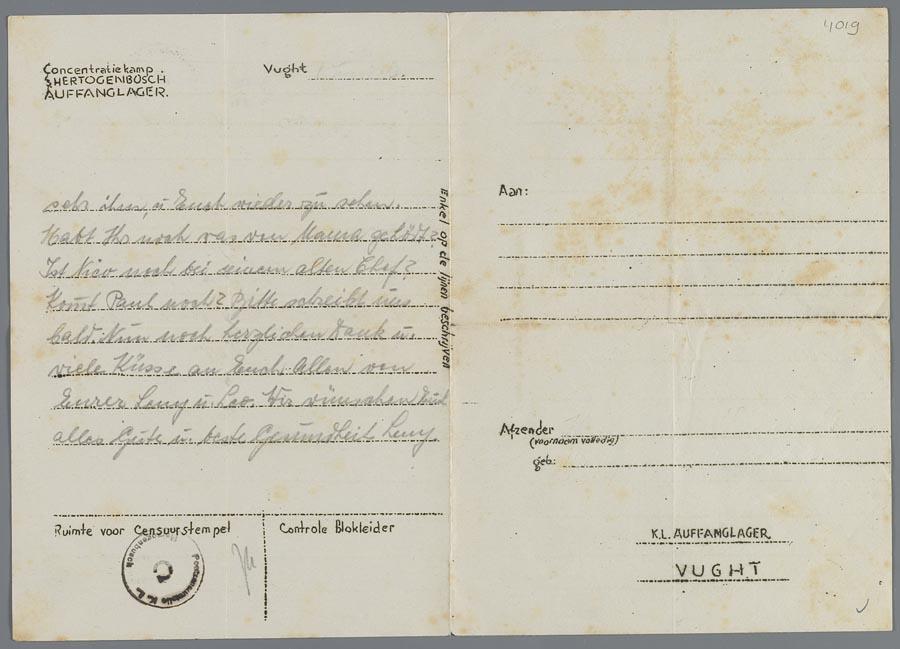 4019
Concentratiekamp.
'S HERTOGENBOSCH
AUFFANGLAGER.
Vught
sehr ihn, u Euch wieder zu sehn.
Habt Ihr noch was von Mama gehört?
Ist Nico noch bei seinem alten Chef?
Komt Paul noch? Bitte schreibt uns
bald. Nun noch herzlichen Dank u.
viele Küsse an Euch Allen von
Eurer Leny u. Leo. Wir wünschen Euch
alles Gute u. beste Gesundheit Leny.
Enkel op de lijnen beschrijven
Ruimte voor Censuurstempel
Controle Blokleider
Postzensurstelle K. L.
Herzogenbusch
C
Aan:
Afzender
(voornaam volledig)
geb:
K.L. AUFFANGLAGER
VUGHT